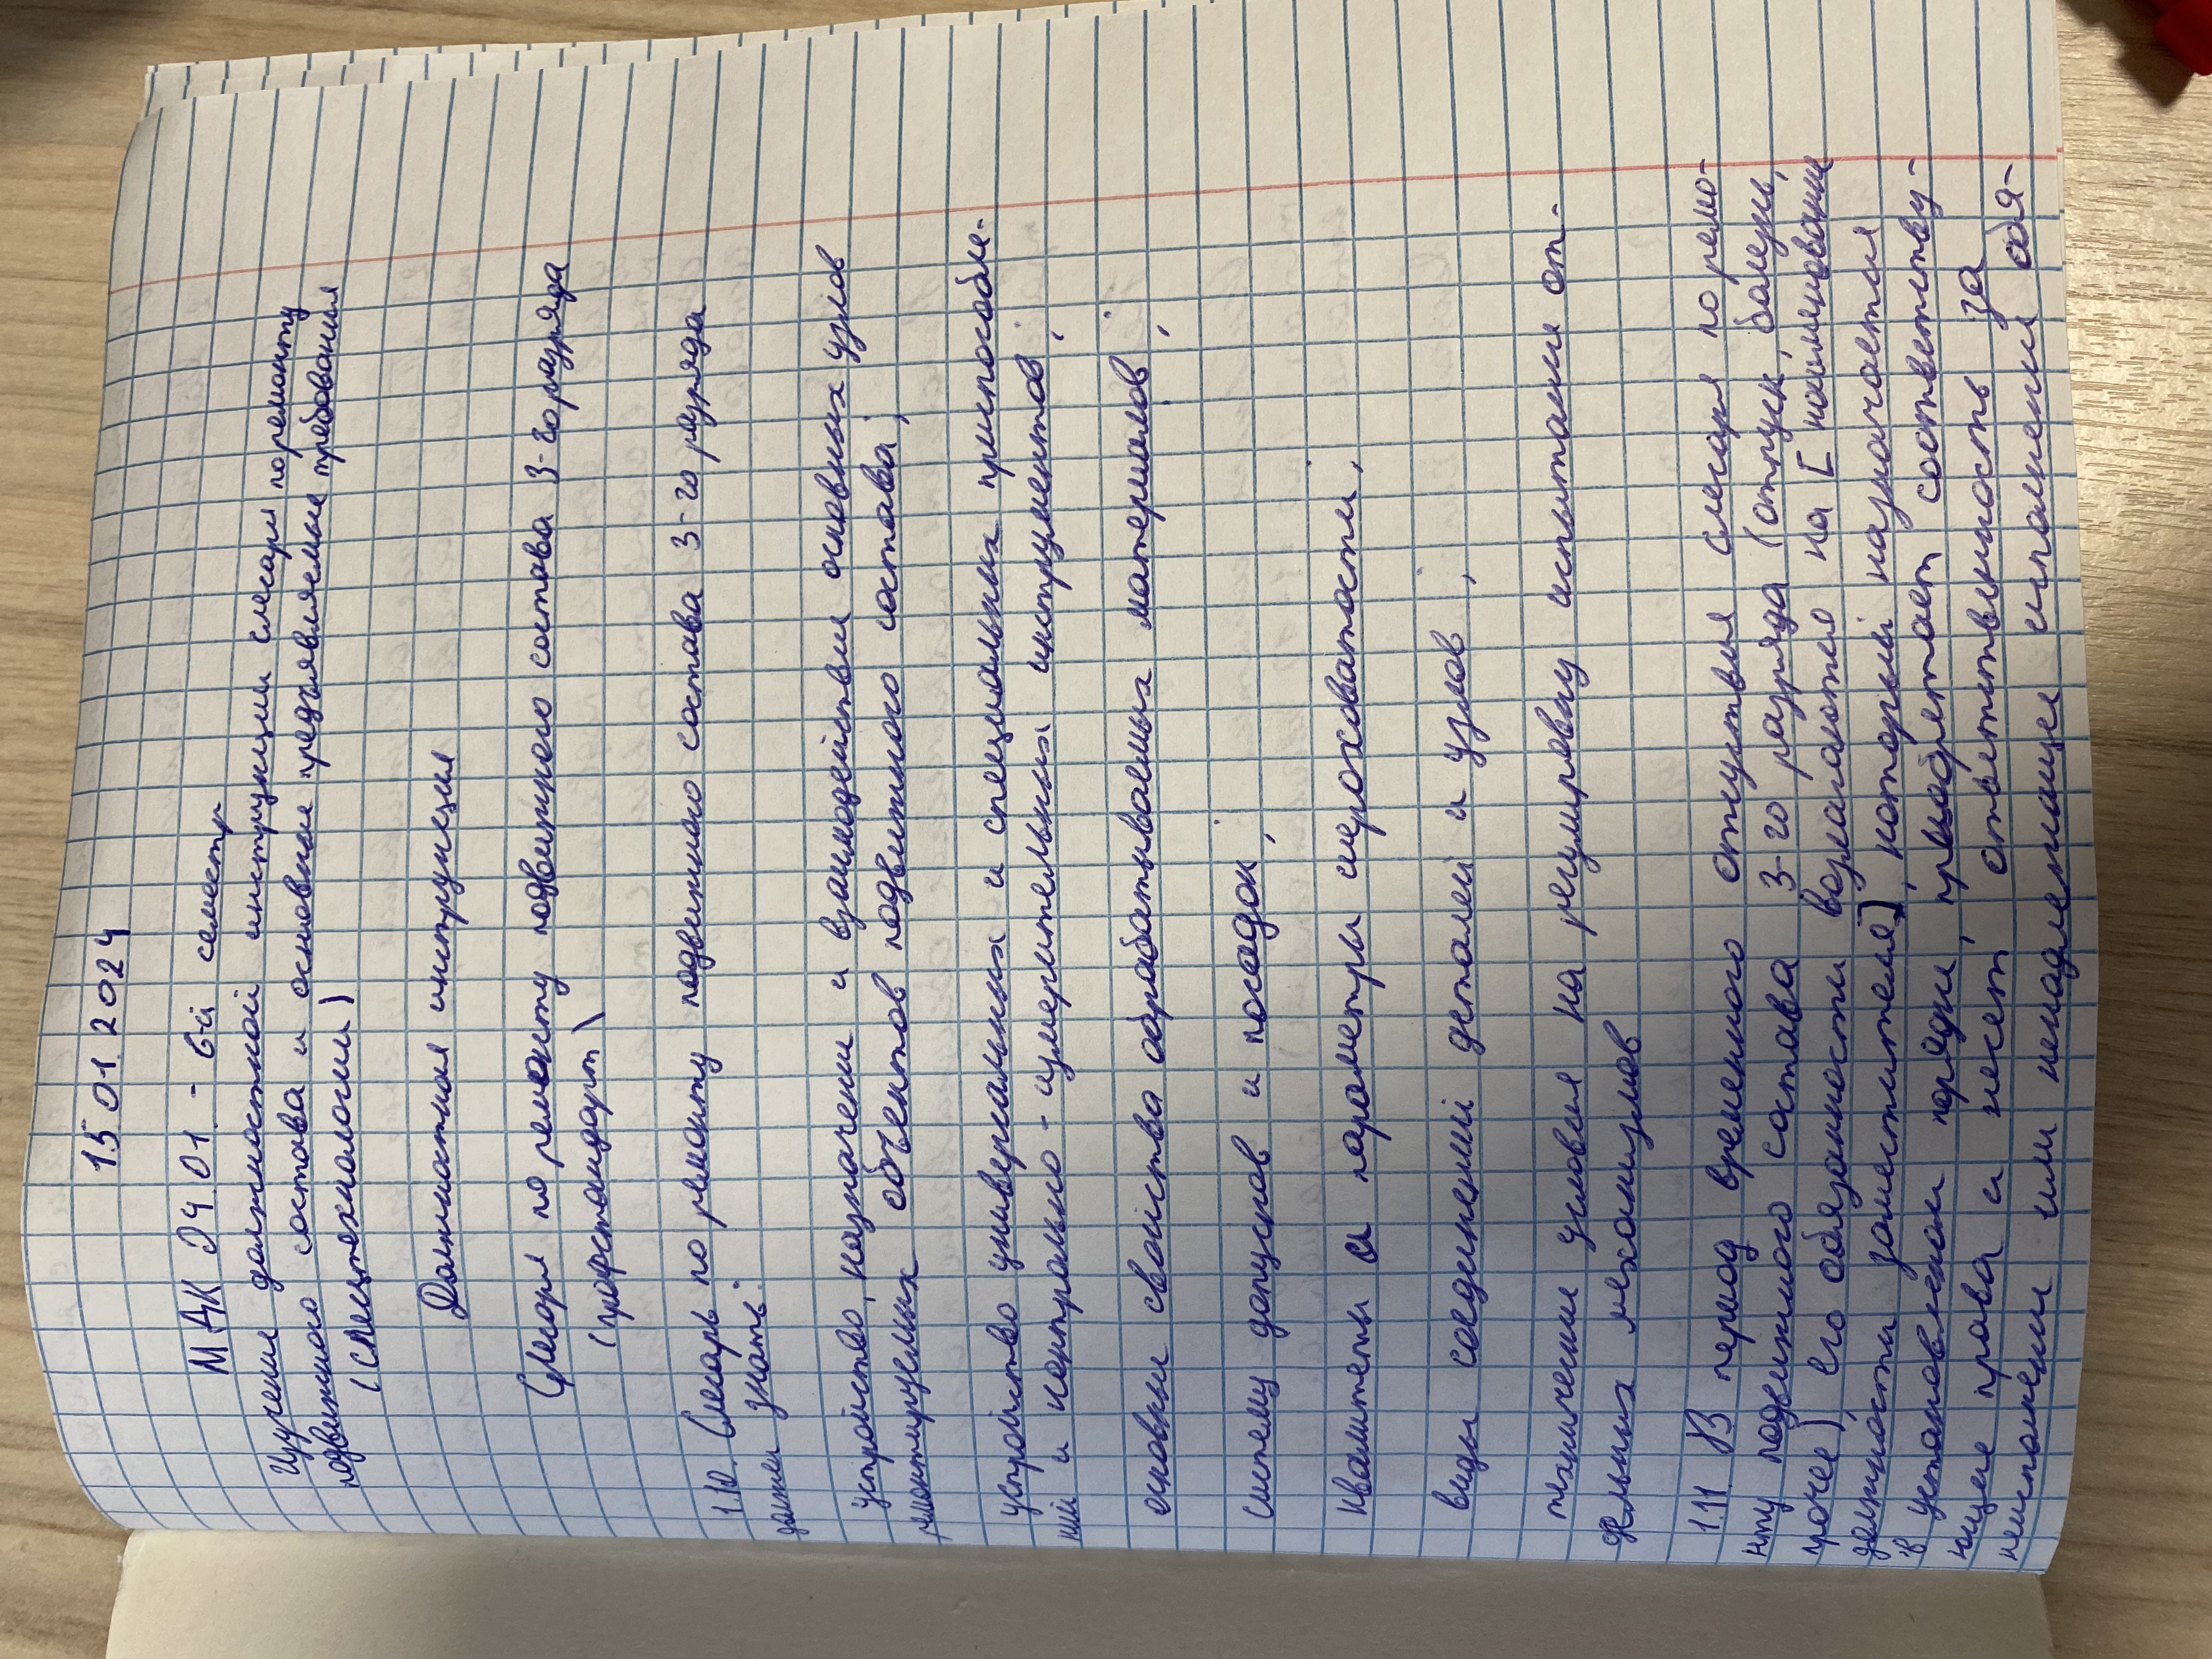 15 01 2024
МДК 04 01 - 6й семестр
Изучение должностной инструкции слесаря по ремонту
подвижного состава и основные предъявляемые требования
(спецтехнологии)
Должностная инструкция
Слесаря по ремонту подвижного состава 3-го разряда
(профстандарт)
1.10. Слесарь по ремонту подвижного состава 3-го разряда
должен знать:
устройство, назначение и взаимодействие основных узлов
ремонтируемых объектов подвижного состава;
устройство универсальных и специальных приспособле-
ний и контрольно - измерительных инструментов;
основные свойства обрабатываемых материалов;
систему допусков и посадок;
квалитеты и параметры шероховатости;
виды соединений деталей и узлов;
технические условия на регулировку испытание от-
дельных механизмов
1.11 В период временного отсутствия слесаря по ремо-
нту подвижного состава 3-го разряда (отпуск, болезнь,
прочее) его обязанности возлагаются на [наименование
должности заместителя], который назначается
в установленном порядке, приобретает соответству-
ющие права и несет ответственность за
неисполнение или ненадлежащее исполнение обя-